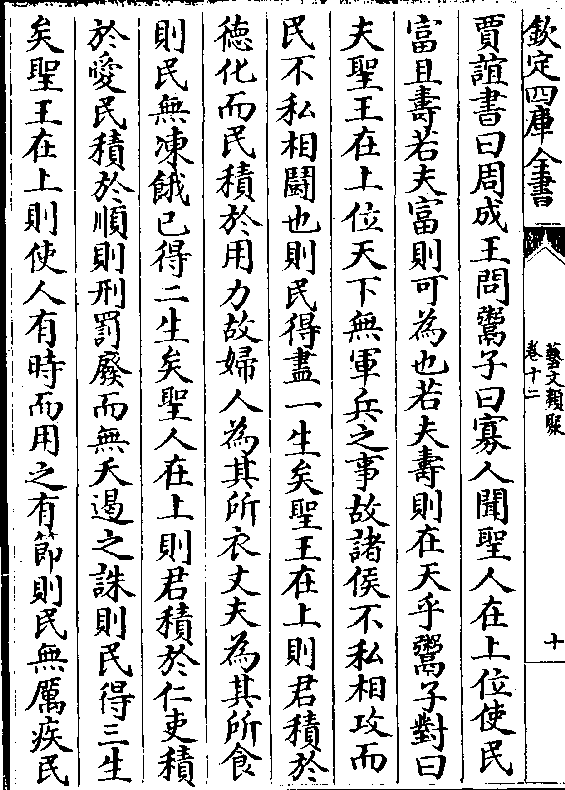 欽定四庫全書
藝文類聚
卷十二
十
賈誼書曰周成王問鬻子曰寡人聞聖人在上位使民
富且壽若夫富則可為也若夫壽則在天乎鬻子對曰
夫聖王在上位天下無軍兵之事故諸侯不私相攻而
民不私相鬭也則民得盡一生矣聖王在上則君積於
徳化而民積於用力故婦人為其所衣丈夫為其所食
則民無凍餓已得二生矣聖人在上則君積於仁吏積
於愛民積於順則刑罰廢而無夭遏之誅則民得三生
矣聖王在上則使人有時而用之有節則民無厲疾民